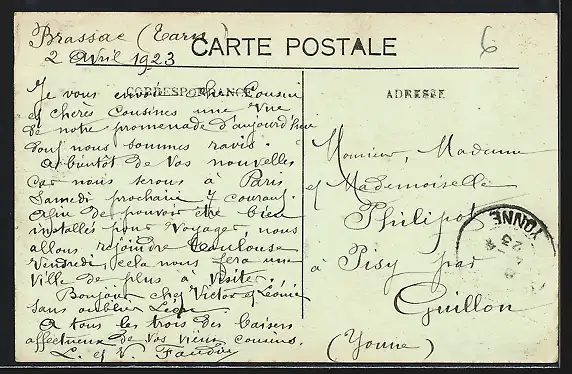 Brassac (Tarn)
2 Avril 1923
CARTE POSTALE
6
CORRESPONDANCE
Je vous envoi cher Cousin
et chères Cousines une Vue
de notre promenade d'aujourd'hui
dont nous sommes ravis.
a bientôt de Vos nouvelles,
car nous serons à Paris
Samedi prochain 7 courant.
Afin de pouvoir être bien
installés pour Voyager, nous
allons rejoindre Toulouse
Vendredi, cela nous fera une
Ville de plus à Visiter.
Bonjour chez Victor et Léonie
sans oublier
A tous les trois des baisers
affectueux de Vos vieux cousins.
L. et V.
ADRESSE
Monsieur, Madame
et Mademoiselle
Philipot
à Pisy par
Guillon
(Yonne)
YONNE
23